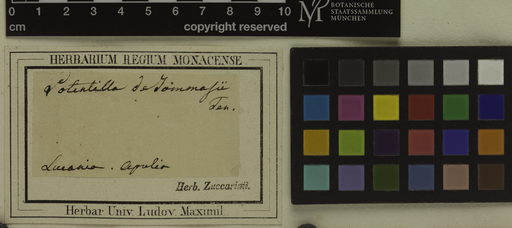 0 1 2 3 4 5 6 7 8 9 10
cm copyright reserved
BOTANISCHE
STAATSSAMMLUNG
MÜNCHEN
HERBARIUM REGIUM MONACENSE
Potentilla de Tommasii
Ten.
Lucania. Apulia
Herb. Zuccarinii.
Herbar. Univ. Ludov. Maximil.